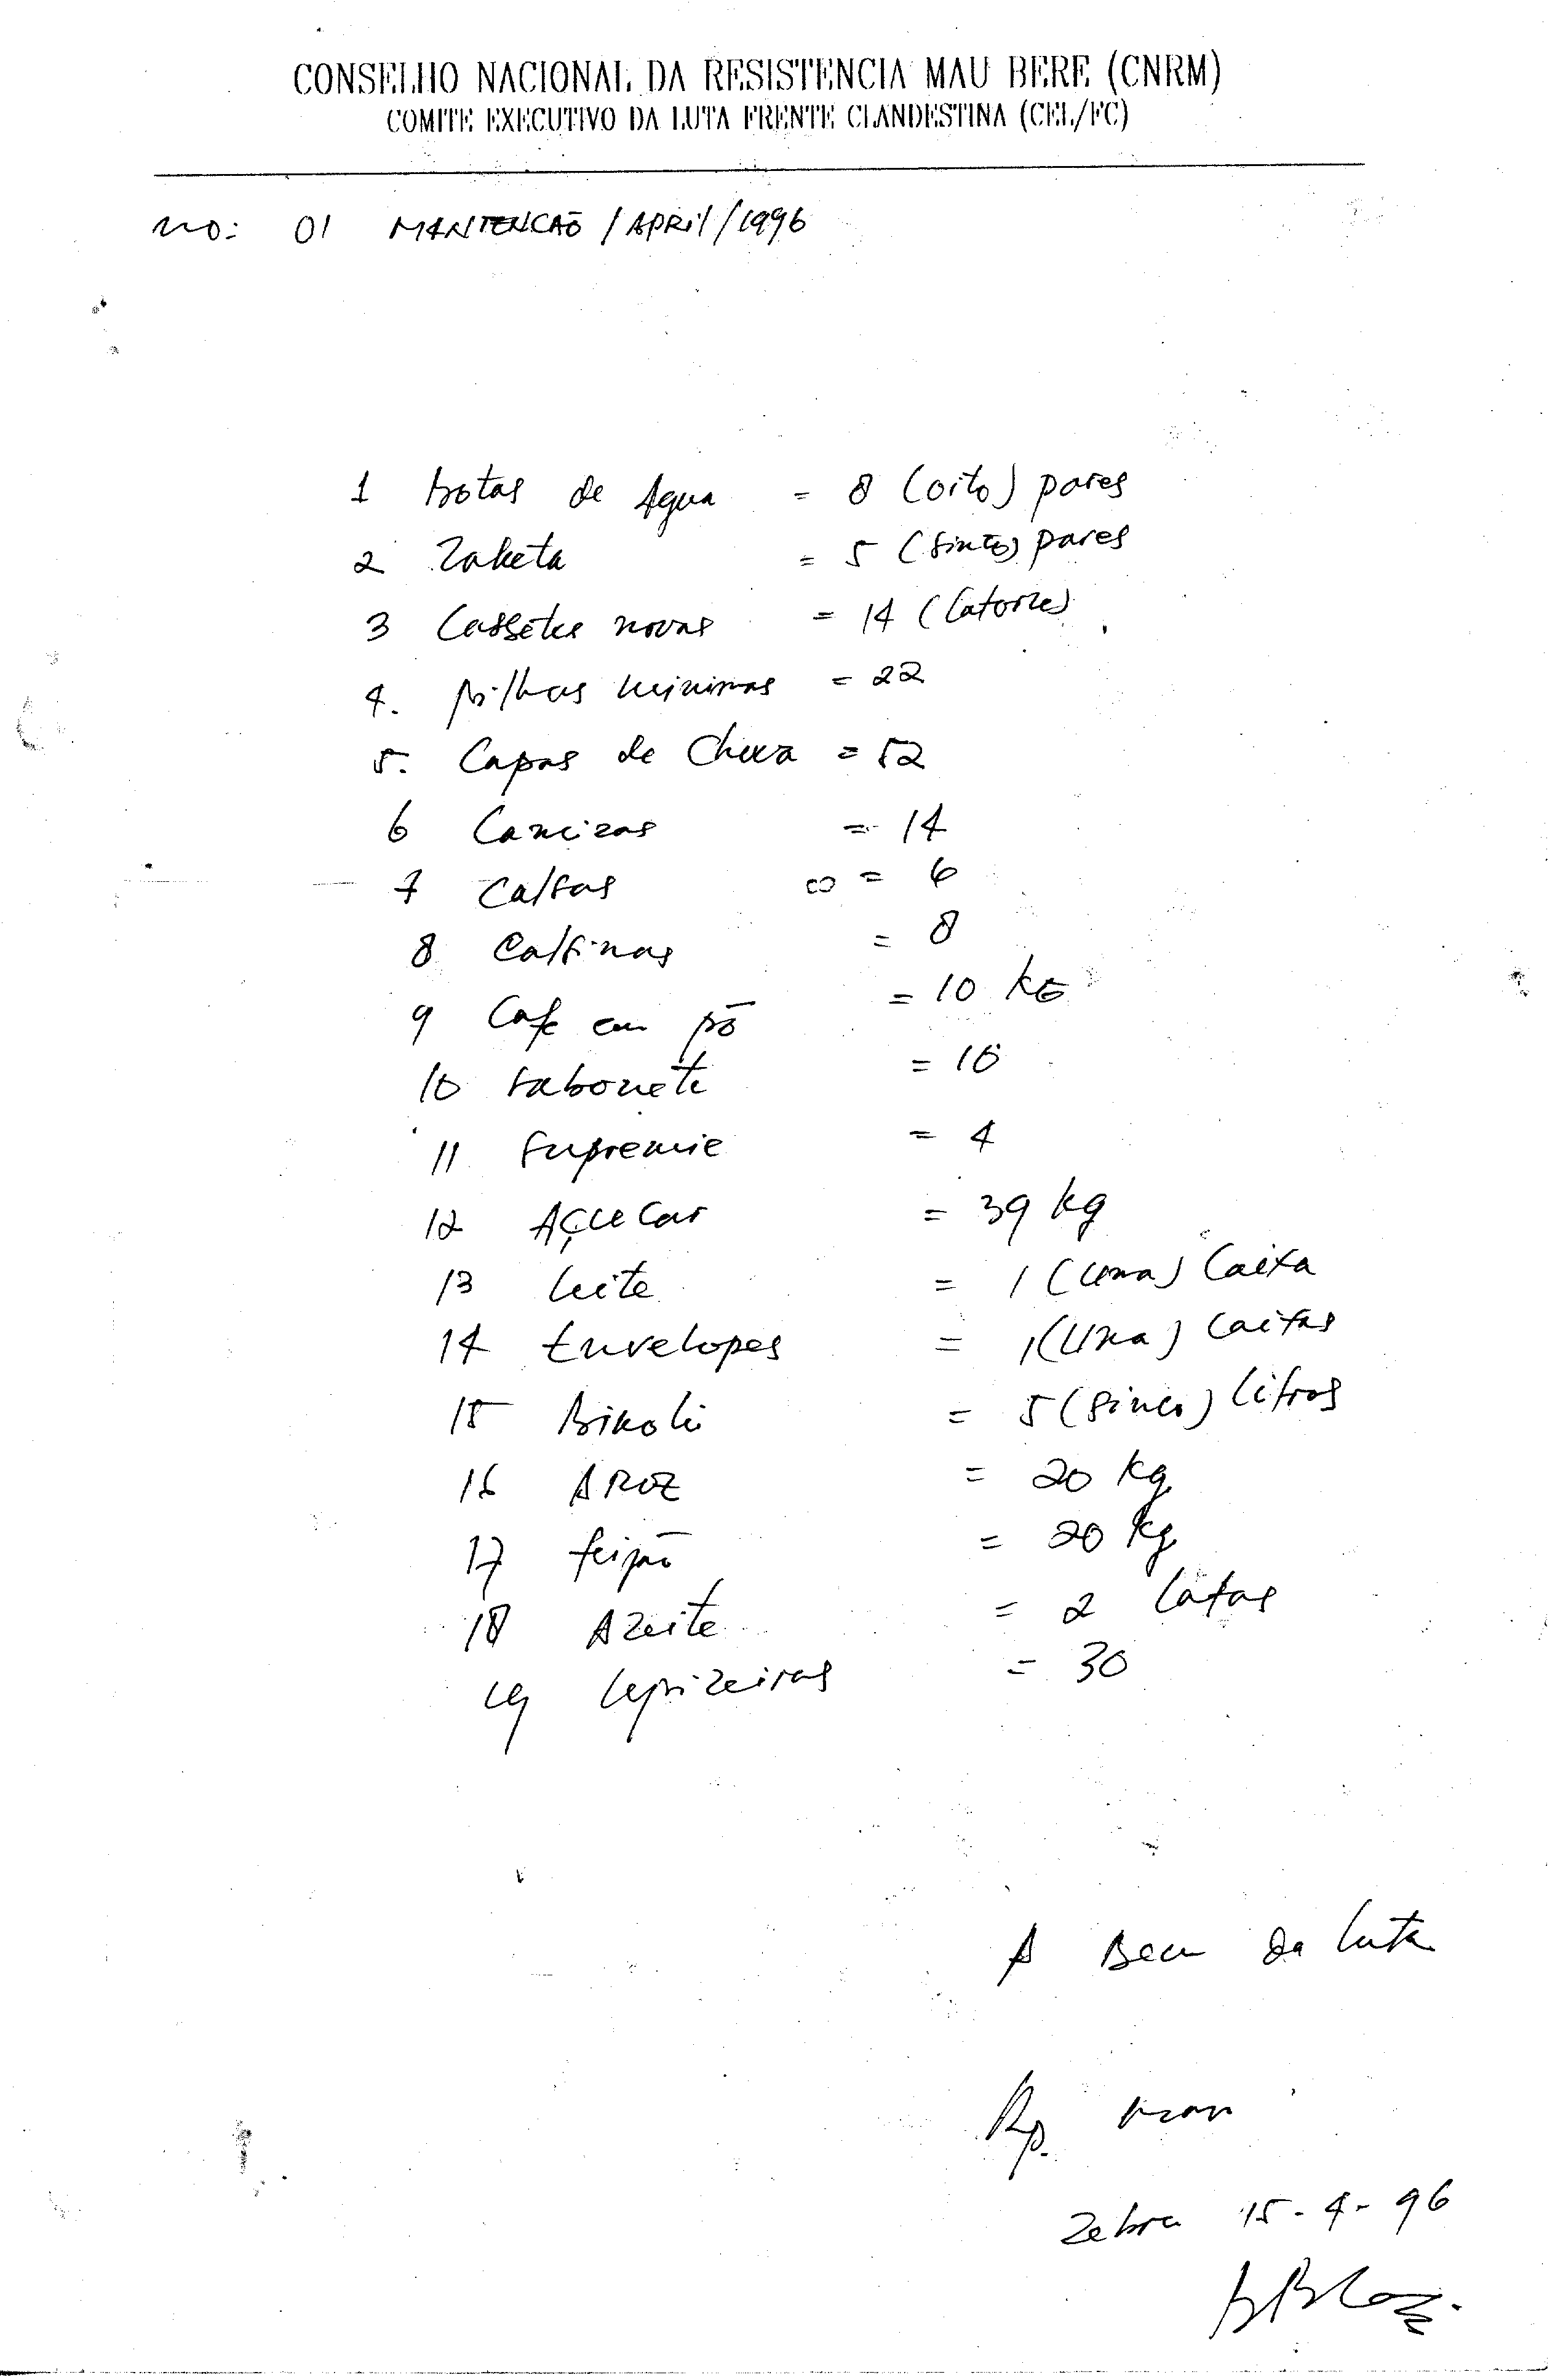 CONSELHO NACIONAL DA RESISTENCIA MAU BERE (CNRM)
COMITE EXECUTIVO DA LUTA FRENTE CLANDESTINA (CEL/FC)
NO: 01 MANTENCAÕ / APRil / 1996
1 botas de Agua = 8 (oito) pares
2 Zaketa = 5 (sinco) pares
3 Cassetes novas = 14 (Catorze)
4. pilhas minimas = 22
5. Capas de Chuva = 52
6 Camizas = 14
7 Calsas = 6
8 Calsinas = 8
9 Cafe em põ = 10 KG
10 sabonete = 10
11 Supremie = 4
12 Açucar = 39 kg
13 leite = 1 (uma) Caixa
14 Envelopes = 1 (Uma) Caixas
15 Bikoli = 5 (sinco) Litros
16 AROZ = 20 Kg
17 feijão = 20 Kg
18 Azeite = 2 latas
19 lapizeiras = 30
A Bem da luta
Rp.
Zebra 15-4-96